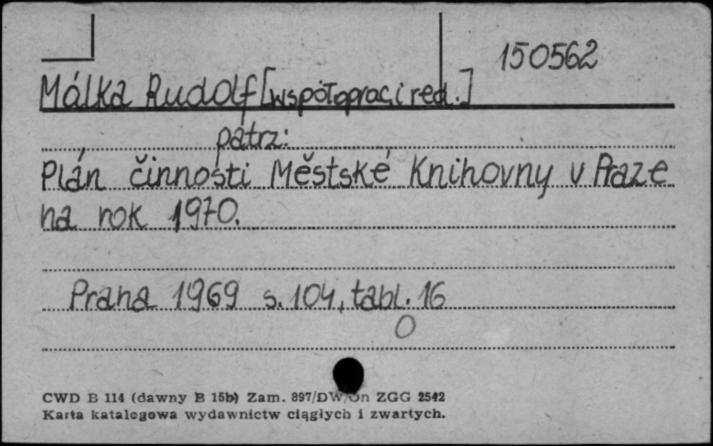 150562
Málka Rudolf [współoprac. i red.]
patrz:
Plán činnosti Městské Knihovny v Praze
na rok 1970.
Praha 1969 s. 104, tabl. 16
CWD B 114 (dawny B 15b) Zam. 897/DW/On ZGG 2542
Karta katalogowa wydawnictw ciągłych i zwartych.